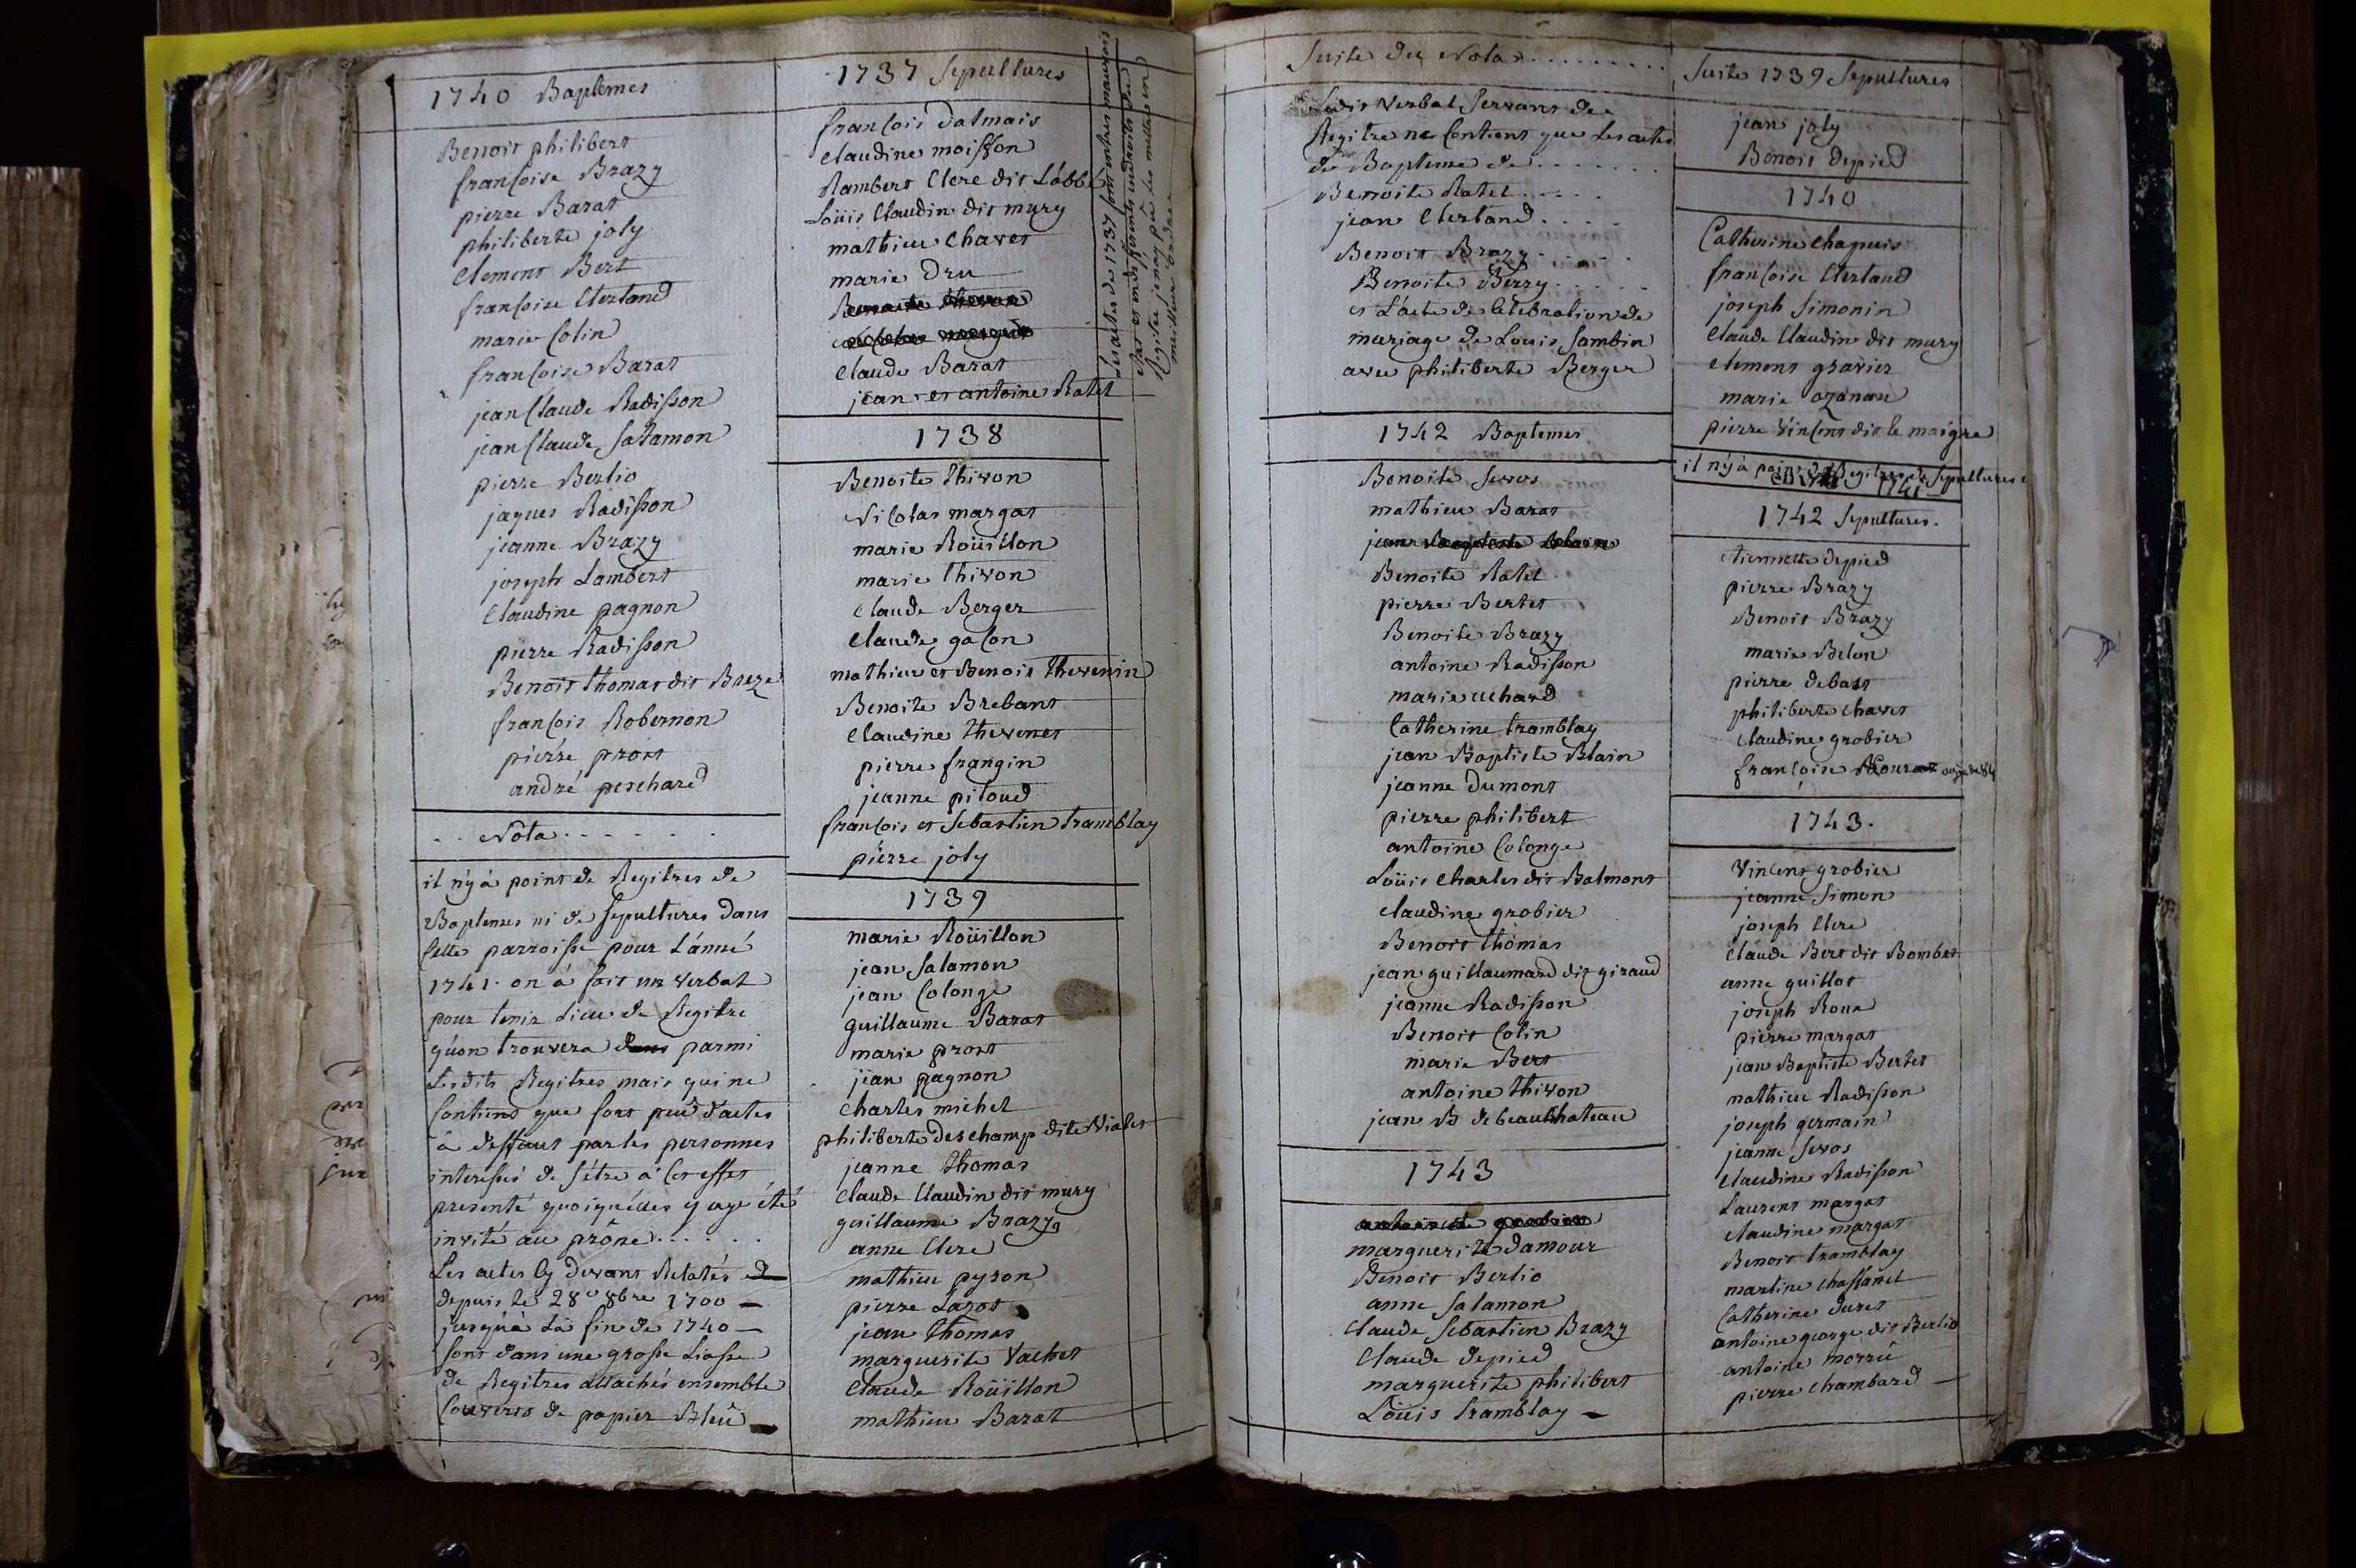 1740 Baptemes
Benoit philibert
françoise Brazy
pierre Barat
philiberte joly
Clement Bert
françoise Clerland
marie Colin
françoise Barat
jean Claude Radisson
jean Claude Salamon
pierre Berlio
jaques Radisson
jeanne Brazy
joseph Lambert
Claudine pagnon
pierre Radisson
Benoit thomas dit Breze
françois Robernon
pierre prost
andré perchard
Nota
il n'y à point de Regitres de
Baptemes ni de Sepultures dans
Cette parroisse pour L'année
1741. on à fait un verbal
pour tenir Lieu de Regitre
qu'on trouvera parmi
Lesdits Regitres mais qui ne
Contient que fort peu d'actes
à deffaut par les personnes
interessés de s'étre à Cet effet
presenté quoiqu'elles y aye été
invité au prône
Les actes Cy devant Relatés
depuis le 28e 8bre 1700
jusqu'à La fin de 1740
sont dans une grosse Liasse
de Regitres attachés ensemble
Couverts de papier Bleû
1737 Sepultures
françois Dalmais
Claudine moisson
Rambert Clere dit L'abbé
Loüis Claudin dit mury
mathieu Chavet
marie Dru
Claude Barat
jean et antoine Ratel
1738
Benoite thivon
Nicolas margat
marie Roüillon
marie thivon
Claude Berger
Claude galon
mathieu et Benoit thevenin
Benoite Brebant
Claudine thevenet
pierre frangin
jeanne pitoud
françois et Sebastien tramblay
pierre joly
1739
marie Roüillon
jean Salamon
jean Colonge
guillaume Barat
marie prost
jean pagnon
Charles michel
philiberte deschamp dite Vialet
jeanne thomas
Claude Claudin dit mury
guillaume Brazy
anne Clere
mathieu pyron
pierre Lazot
jean thomas
marguerite Vachet
Claude Roüillon
mathieu Barat
Les actes de 1737 sont en tres mauvais
Regitre je n'ay pû les mettre en
meilleur ordre
Suite du Nota
Ledit Verbal Servant de
Regitre ne Contient que Les actes
de Bapteme de
Benoite Ratel
jean Clerland
Benoit Brazy
Benoite Berry
et L'acte de Celebration de
mariage de Louis Sambin
avec philiberte Berger
1742 Baptemes
Benoite Servos
mathieu Barat
Benoite Ratel
pierre Bertet
Benoite Brazy
antoine Radisson
marie uchard
Catherine tramblay
jean Baptiste Blain
jeanne Dumont
pierre philibert
antoine Colonge
Loüis Charles dit Balmont
Claudine grobier
Benoit thomas
jean guillaumard dit giraud
jeanne Radisson
Benoit Colin
marie Bert
antoine thivon
jean B de beauChateau
1743
marguerite Damour
Benoit Berlio
anne Salamon
Claude Sebastien Brazy
Claude depied
marguerite philibert
Loüis tramblay
Suite 1739 Sepultures
jean joly
Benoit depied
1740
Catherine Chapuis
françoise Clerland
joseph Simonin
Claude Claudin dit mury
Clement gravier
marie ozanan
pierre Vincent dit le maigre
il n'y à point de Regitres de Sepultures
1741
1742 Sepultures.
Etiennette depied
pierre Brazy
Benoit Brazy
marie Belon
pierre debast
philiberte Chavet
Claudine grobier
françoise
1743.
Vincent grobier
jeanne Simon
joseph Clere
Claude Bert dit Bombet
anne guillot
joseph Roux
pierre margat
jean Baptiste Bertet
mathieu Radisson
joseph germain
jeanne Servos
Claudine Radisson
Laurent margat
Claudine margat
Benoit tramblay
martine Chassanet
Catherine duret
antoine george dit Berlio
antoine morrû
pierre Chambard